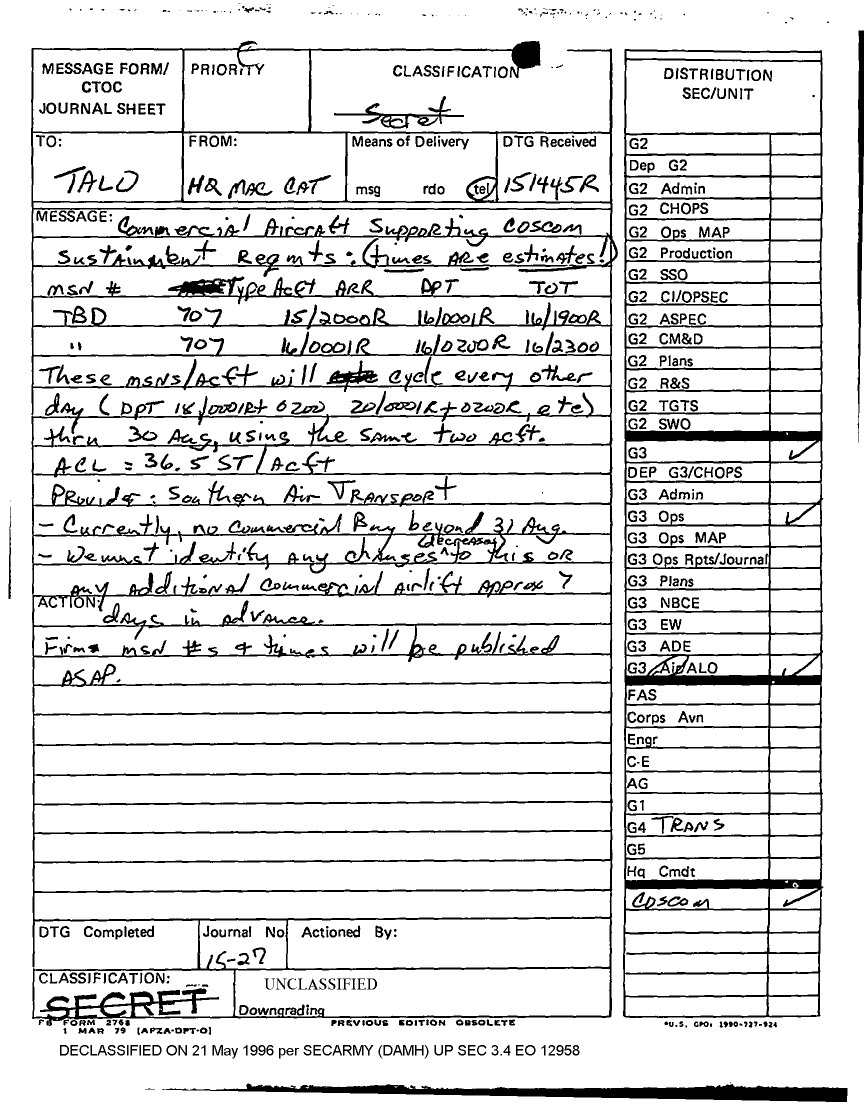 MESSAGE FORM/
CTOC
JOURNAL SHEET
PRIORITY
CLASSIFICATION
Secret
TO:
TALO
FROM:
HQ MAC CAT
Means of Delivery
msg rdo tel
DTG Received
151445R
MESSAGE: Commercial Aircraft Supporting COSCOM
Sustainment Reqmts: (times are estimates!)
msn # Type Acft ARR DPT TOT
TBD 707 15/2000R 16/0001R 16/1900R
" 707 16/0001R 16/0200R 16/2300
These msns/Acft will cycle every other
day (DPT 18/0001R + 0200, 20/0001R + 0200R, etc)
thru 30 Aug, using the same two acft.
ACL = 36.5 ST/Acft
Provider: Southern Air TRANSPORT
- Currently, no commercial Buy beyond 31 Aug.
- We must identify any changes (decreases) ^ to this or
any additional commercial airlift approx 7
ACTION:
days in advance.
Firm msn #s & times will be published
ASAP.
DTG Completed
Journal No
15-27
Actioned By:
CLASSIFICATION:
SECRET
UNCLASSIFIED
Downgrading
FB FORM 2768
1 MAR 79 [APZA-DPT-O]
PREVIOUS EDITION OBSOLETE
DISTRIBUTION
SEC/UNIT
G2
Dep G2
G2 Admin
G2 CHOPS
G2 Ops MAP
G2 Production
G2 SSO
G2 CI/OPSEC
G2 ASPEC
G2 CM&D
G2 Plans
G2 R&S
G2 TGTS
G2 SWO
G3
DEP G3/CHOPS
G3 Admin
G3 Ops
G3 Ops MAP
G3 Ops Rpts/Journal
G3 Plans
G3 NBCE
G3 EW
G3 ADE
G3 Air/ALO
FAS
Corps Avn
Engr
C-E
AG
G1
G4 TRANS
G5
Hq Cmdt
COSCOM
*U.S. GPO: 1990-727-924
DECLASSIFIED ON 21 May 1996 per SECARMY (DAMH) UP SEC 3.4 EO 12958